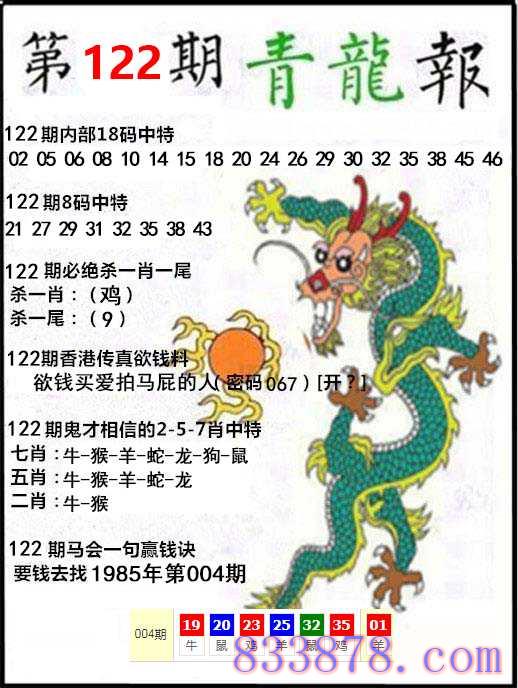 第122期 青龍報
122期内部18码中特
02 05 06 08 10 14 15 18 20 24 26 29 30 32 35 38 45 46
122期8码中特
21 27 29 31 32 35 38 43
122期必绝杀一肖一尾
杀一肖：（鸡）
杀一尾：（9）
122期香港传真欲钱料
欲钱买爱拍马屁的人（密码067）[开？]
122期鬼才相信的2-5-7肖中特
七肖：牛-猴-羊-蛇-龙-狗-鼠
五肖：牛-猴-羊-蛇-龙
二肖：牛-猴
122期马会一句赢钱诀
要钱去找1985年第004期
004期 19 20 23 25 32 35 01
牛 鼠 鸡 羊 鼠 鸡 羊
833878.com